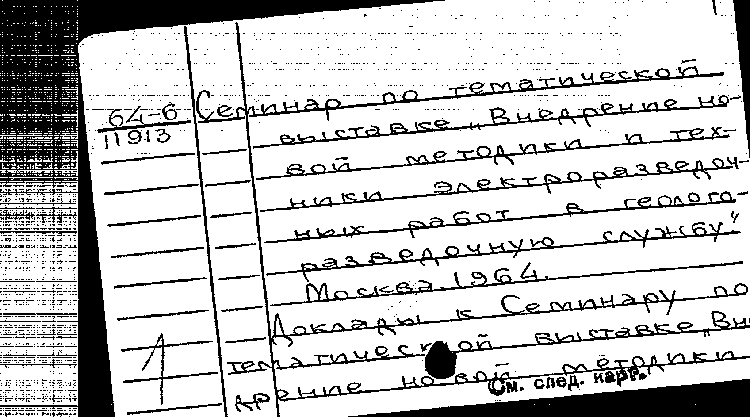 64-6
11913
Семинар по тематической
выставке „Внедрение но-
вой методики и тех-
ники электроразведоч-
ных работ в геолого-
разведочную службу".
Москва. 1964.
Доклады к Семинару по
тематической выставке „Вне-
дрение новой методики
См. след. карт.